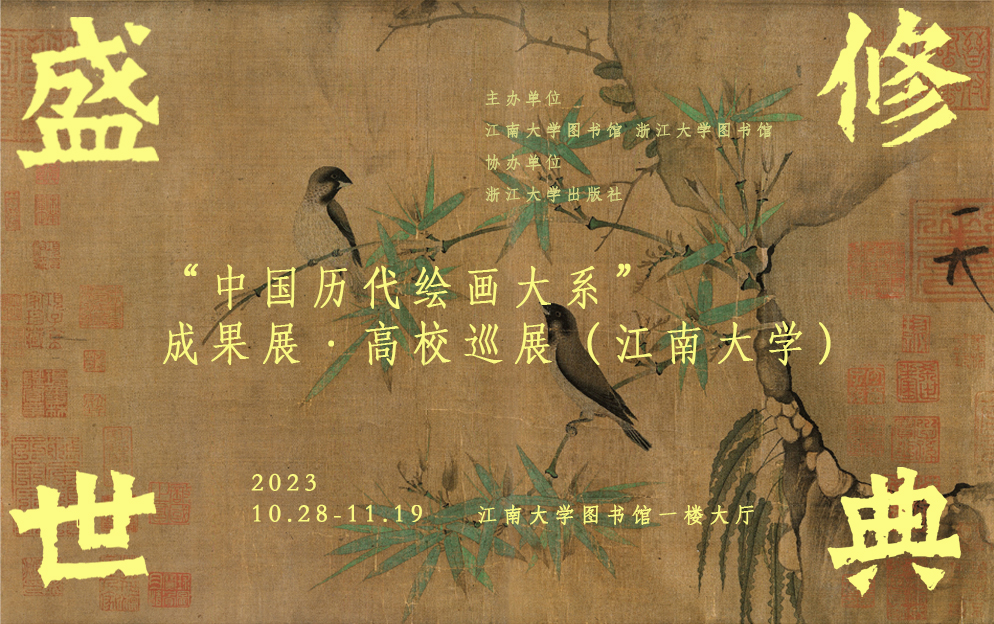 盛世修典
主办单位
江南大学图书馆 浙江大学图书馆
协办单位
浙江大学出版社
“中国历代绘画大系”
成果展·高校巡展（江南大学）
2023
10.28-11.19 江南大学图书馆一楼大厅